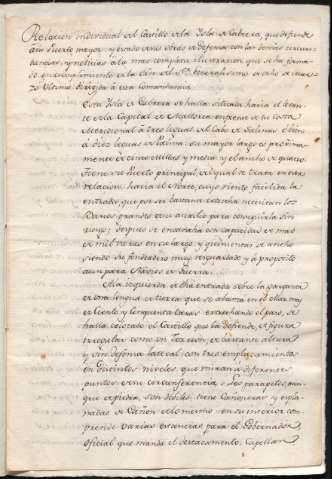 Relacion individual del Castillo de la Isla de Cabrera, que defiende
su Puerto mayor, y estado de sus obras de defensa con las demas circuns-
tancias, y noticias a la mas completa ilustracion que se ha forma-
do en cumplimiento de la orn. del Sr. Generalisimo de ocho de mar-
zo ultimo dirigida a esta Comandancia.
Esta Isla de Cabrera se halla situada hacia el
de la Capital de Mallorca enfrente de su Costa
Meridional a tres leguas del Cabo de Salinas, e bien
a diez leguas de Palma: su mayor largo es proxima-
mente de cinco millas y media, y el ancho de quatro.
Tiene su Puerto principal, del qual se trata en esta
relacion, hacia el Norte, cuyo viento facilita la
entrada, que por ser bastante estrecha necesitan los
Barcos grandes que anocho para conseguirla sin
riesgo; despues se ensancha con capacidad de mas
de mil varas en su largo y quinientas de ancho
siendo su fondeadero muy resguardado y a proposito
aun para Navios de Guerra.
A la izquierda de dha entrada sobre la garganta
de esta lengua de tierra que se abanza en el mar
de ciento y cinquenta varas estrechando el paso, se
halla colocado el Castillo que la defiende, de figura
irregular como un Torreon, de bastante altura
y sin defensa lateral con tres emplazamientos
en distintos niveles que miran a diferentes
puntos de su circunferencia. Los parapetos, aun-
que de piedra, son debiles, tiene Cañoneras y espla-
nadas de Cañon de lo mismo: en su interior com-
prende varias estancias para el Gobernador,
oficial que manda el destacamento, Capellan